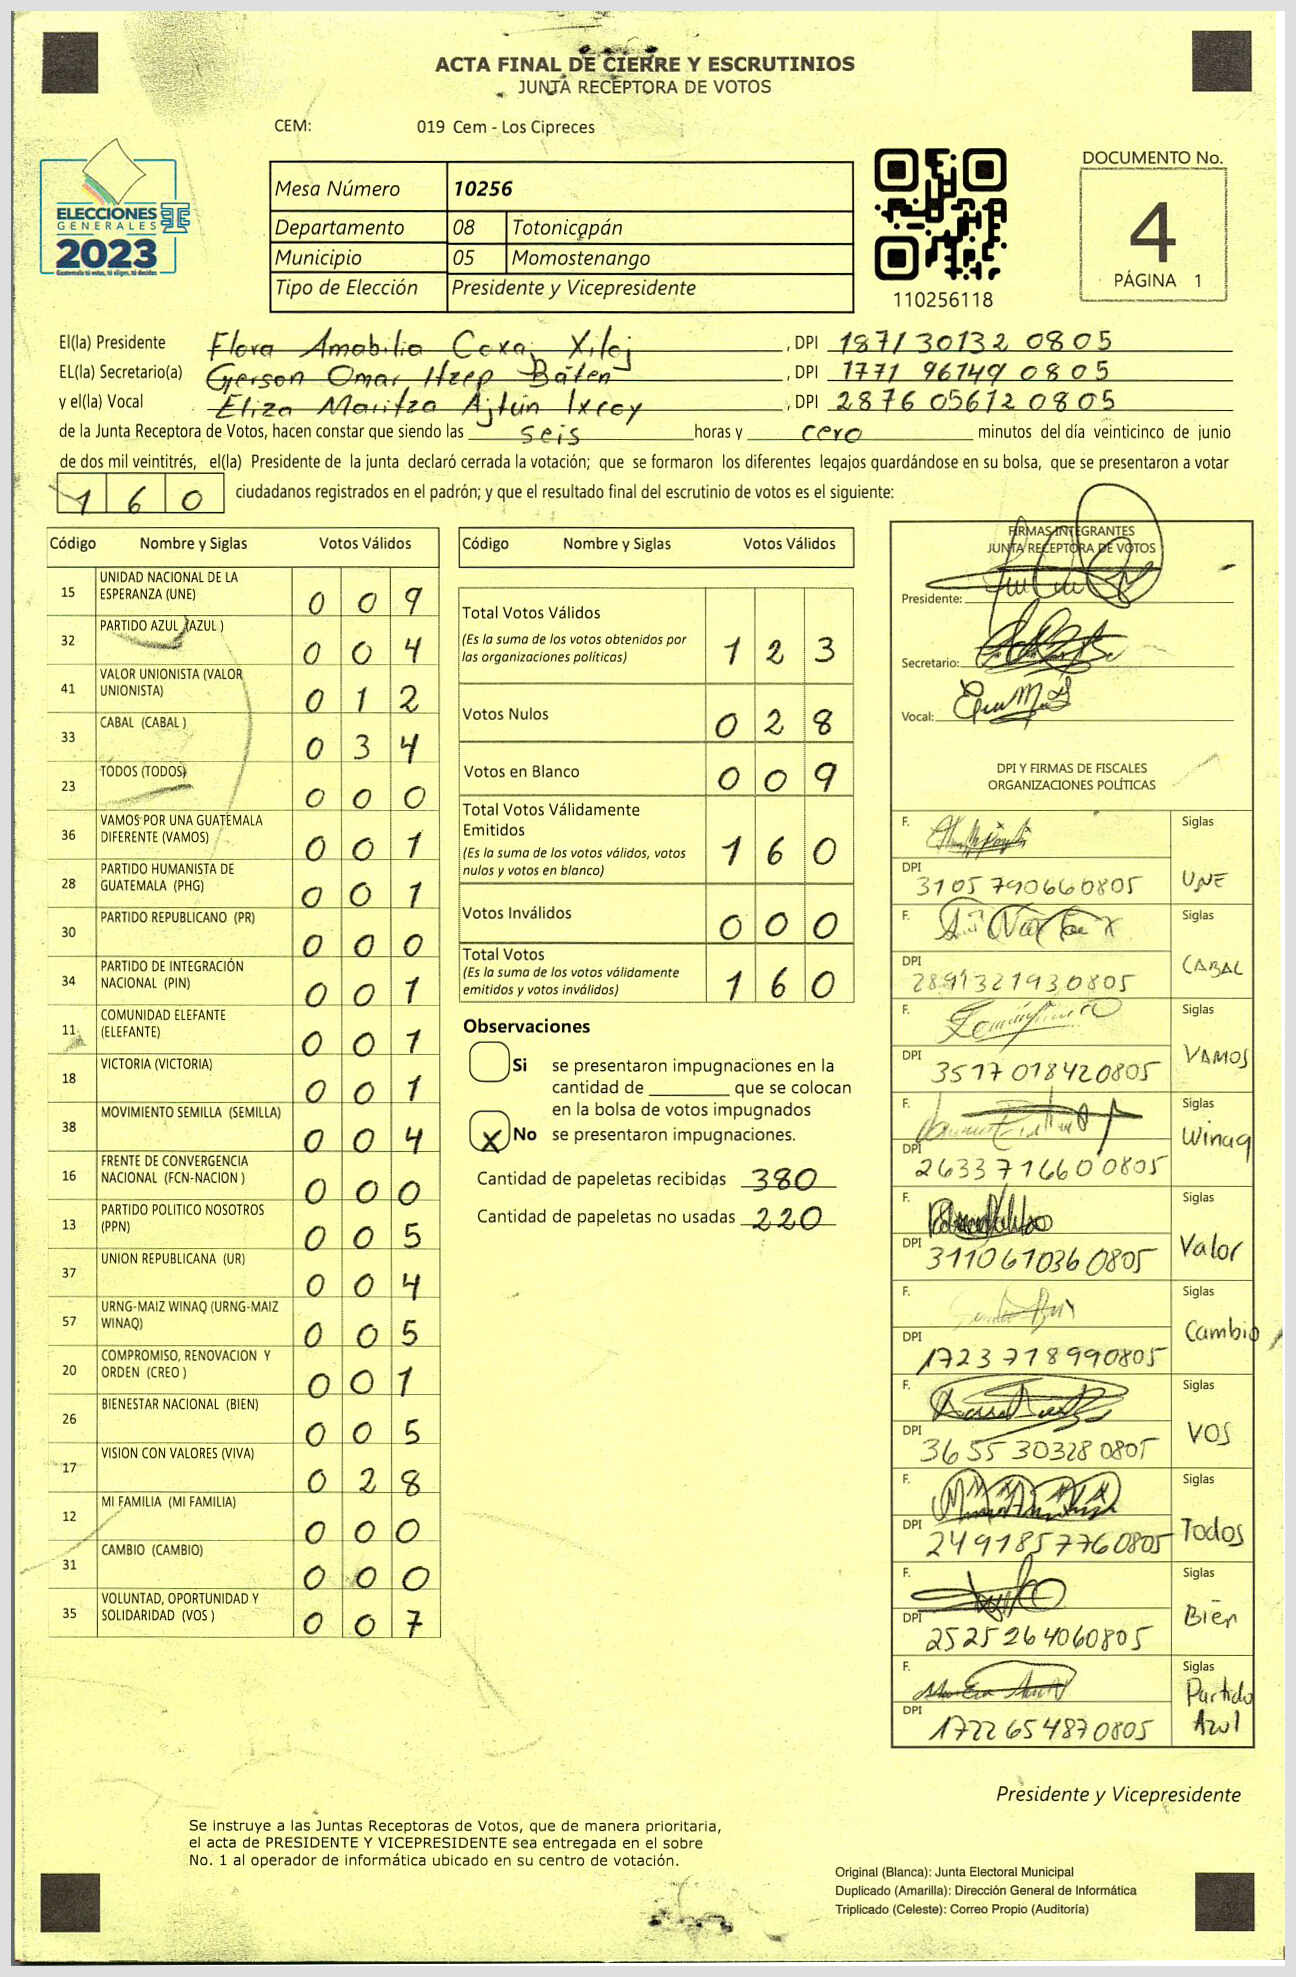 ACTA FINAL DE CIERRE Y ESCRUTINIOS
JUNTA RECEPTORA DE VOTOS
CEM: 019 Cem - Los Cipreces
ELECCIONES
GENERALES
2023
Guatemala tú votas, tú eliges, tú decides
Mesa Número 10256
Departamento 08 Totonicapán
Municipio 05 Momostenango
Tipo de Elección Presidente y Vicepresidente
110256118
DOCUMENTO No.
4
PÁGINA 1
El(la) Presidente Flora Amabilia Coxaj Xiloj , DPI 187130132 0805
EL(la) Secretario(a) Gerson Omar Itzep Báten , DPI 1771 96149 0805
y el(la) Vocal Eliza Maritza Ajtún Ixcoy , DPI 2876 05612 0805
de la Junta Receptora de Votos, hacen constar que siendo las seis horas y cero minutos del día veinticinco de junio
de dos mil veintitrés, el(la) Presidente de la junta declaró cerrada la votación; que se formaron los diferentes legajos guardándose en su bolsa, que se presentaron a votar
160 ciudadanos registrados en el padrón; y que el resultado final del escrutinio de votos es el siguiente:
Código Nombre y Siglas Votos Válidos
15 UNIDAD NACIONAL DE LA
ESPERANZA (UNE) 0 0 9
32 PARTIDO AZUL (AZUL ) 0 0 4
41 VALOR UNIONISTA (VALOR
UNIONISTA) 0 1 2
33 CABAL (CABAL ) 0 3 4
23 TODOS (TODOS) 0 0 0
36 VAMOS POR UNA GUATEMALA
DIFERENTE (VAMOS) 0 0 1
28 PARTIDO HUMANISTA DE
GUATEMALA (PHG) 0 0 1
30 PARTIDO REPUBLICANO (PR) 0 0 0
34 PARTIDO DE INTEGRACIÓN
NACIONAL (PIN) 0 0 1
11 COMUNIDAD ELEFANTE
(ELEFANTE) 0 0 1
18 VICTORIA (VICTORIA) 0 0 1
38 MOVIMIENTO SEMILLA (SEMILLA) 0 0 4
16 FRENTE DE CONVERGENCIA
NACIONAL (FCN-NACION ) 0 0 0
13 PARTIDO POLITICO NOSOTROS
(PPN) 0 0 5
37 UNION REPUBLICANA (UR) 0 0 4
57 URNG-MAIZ WINAQ (URNG-MAIZ
WINAQ) 0 0 5
20 COMPROMISO, RENOVACION Y
ORDEN (CREO ) 0 0 1
26 BIENESTAR NACIONAL (BIEN) 0 0 5
17 VISION CON VALORES (VIVA) 0 2 8
12 MI FAMILIA (MI FAMILIA) 0 0 0
31 CAMBIO (CAMBIO) 0 0 0
35 VOLUNTAD, OPORTUNIDAD Y
SOLIDARIDAD (VOS ) 0 0 7
Código Nombre y Siglas Votos Válidos
Total Votos Válidos
(Es la suma de los votos obtenidos por
las organizaciones políticas) 1 2 3
Votos Nulos 0 2 8
Votos en Blanco 0 0 9
Total Votos Válidamente
Emitidos
(Es la suma de los votos válidos, votos
nulos y votos en blanco) 1 6 0
Votos Inválidos 0 0 0
Total Votos
(Es la suma de los votos válidamente
emitidos y votos inválidos) 1 6 0
Observaciones
Si se presentaron impugnaciones en la
cantidad de ________ que se colocan
en la bolsa de votos impugnados
X No se presentaron impugnaciones.
Cantidad de papeletas recibidas 380
Cantidad de papeletas no usadas 220
FIRMAS INTEGRANTES
JUNTA RECEPTORA DE VOTOS
Presidente:
Secretario:
Vocal:
DPI Y FIRMAS DE FISCALES
ORGANIZACIONES POLÍTICAS
F. Siglas
DPI 3105 790660805 UNE
F. Siglas
DPI 2891321930805 CABAL
F. Siglas
DPI 3517018420805 VAMOS
F. Siglas
DPI 2633716600805 Winaq
F. Siglas
DPI 3110610360805 Valor
F. Siglas
DPI 1723718990805 Cambio
F. Siglas
DPI 3655303280805 VOS
F. Siglas
DPI 2491857760805 Todos
F. Siglas
DPI 2525264060805 Bien
F. Siglas
DPI 1722654870805 Partido
Azul
Presidente y Vicepresidente
Se instruye a las Juntas Receptoras de Votos, que de manera prioritaria,
el acta de PRESIDENTE Y VICEPRESIDENTE sea entregada en el sobre
No. 1 al operador de informática ubicado en su centro de votación.
Original (Blanca): Junta Electoral Municipal
Duplicado (Amarilla): Dirección General de Informática
Triplicado (Celeste): Correo Propio (Auditoría)